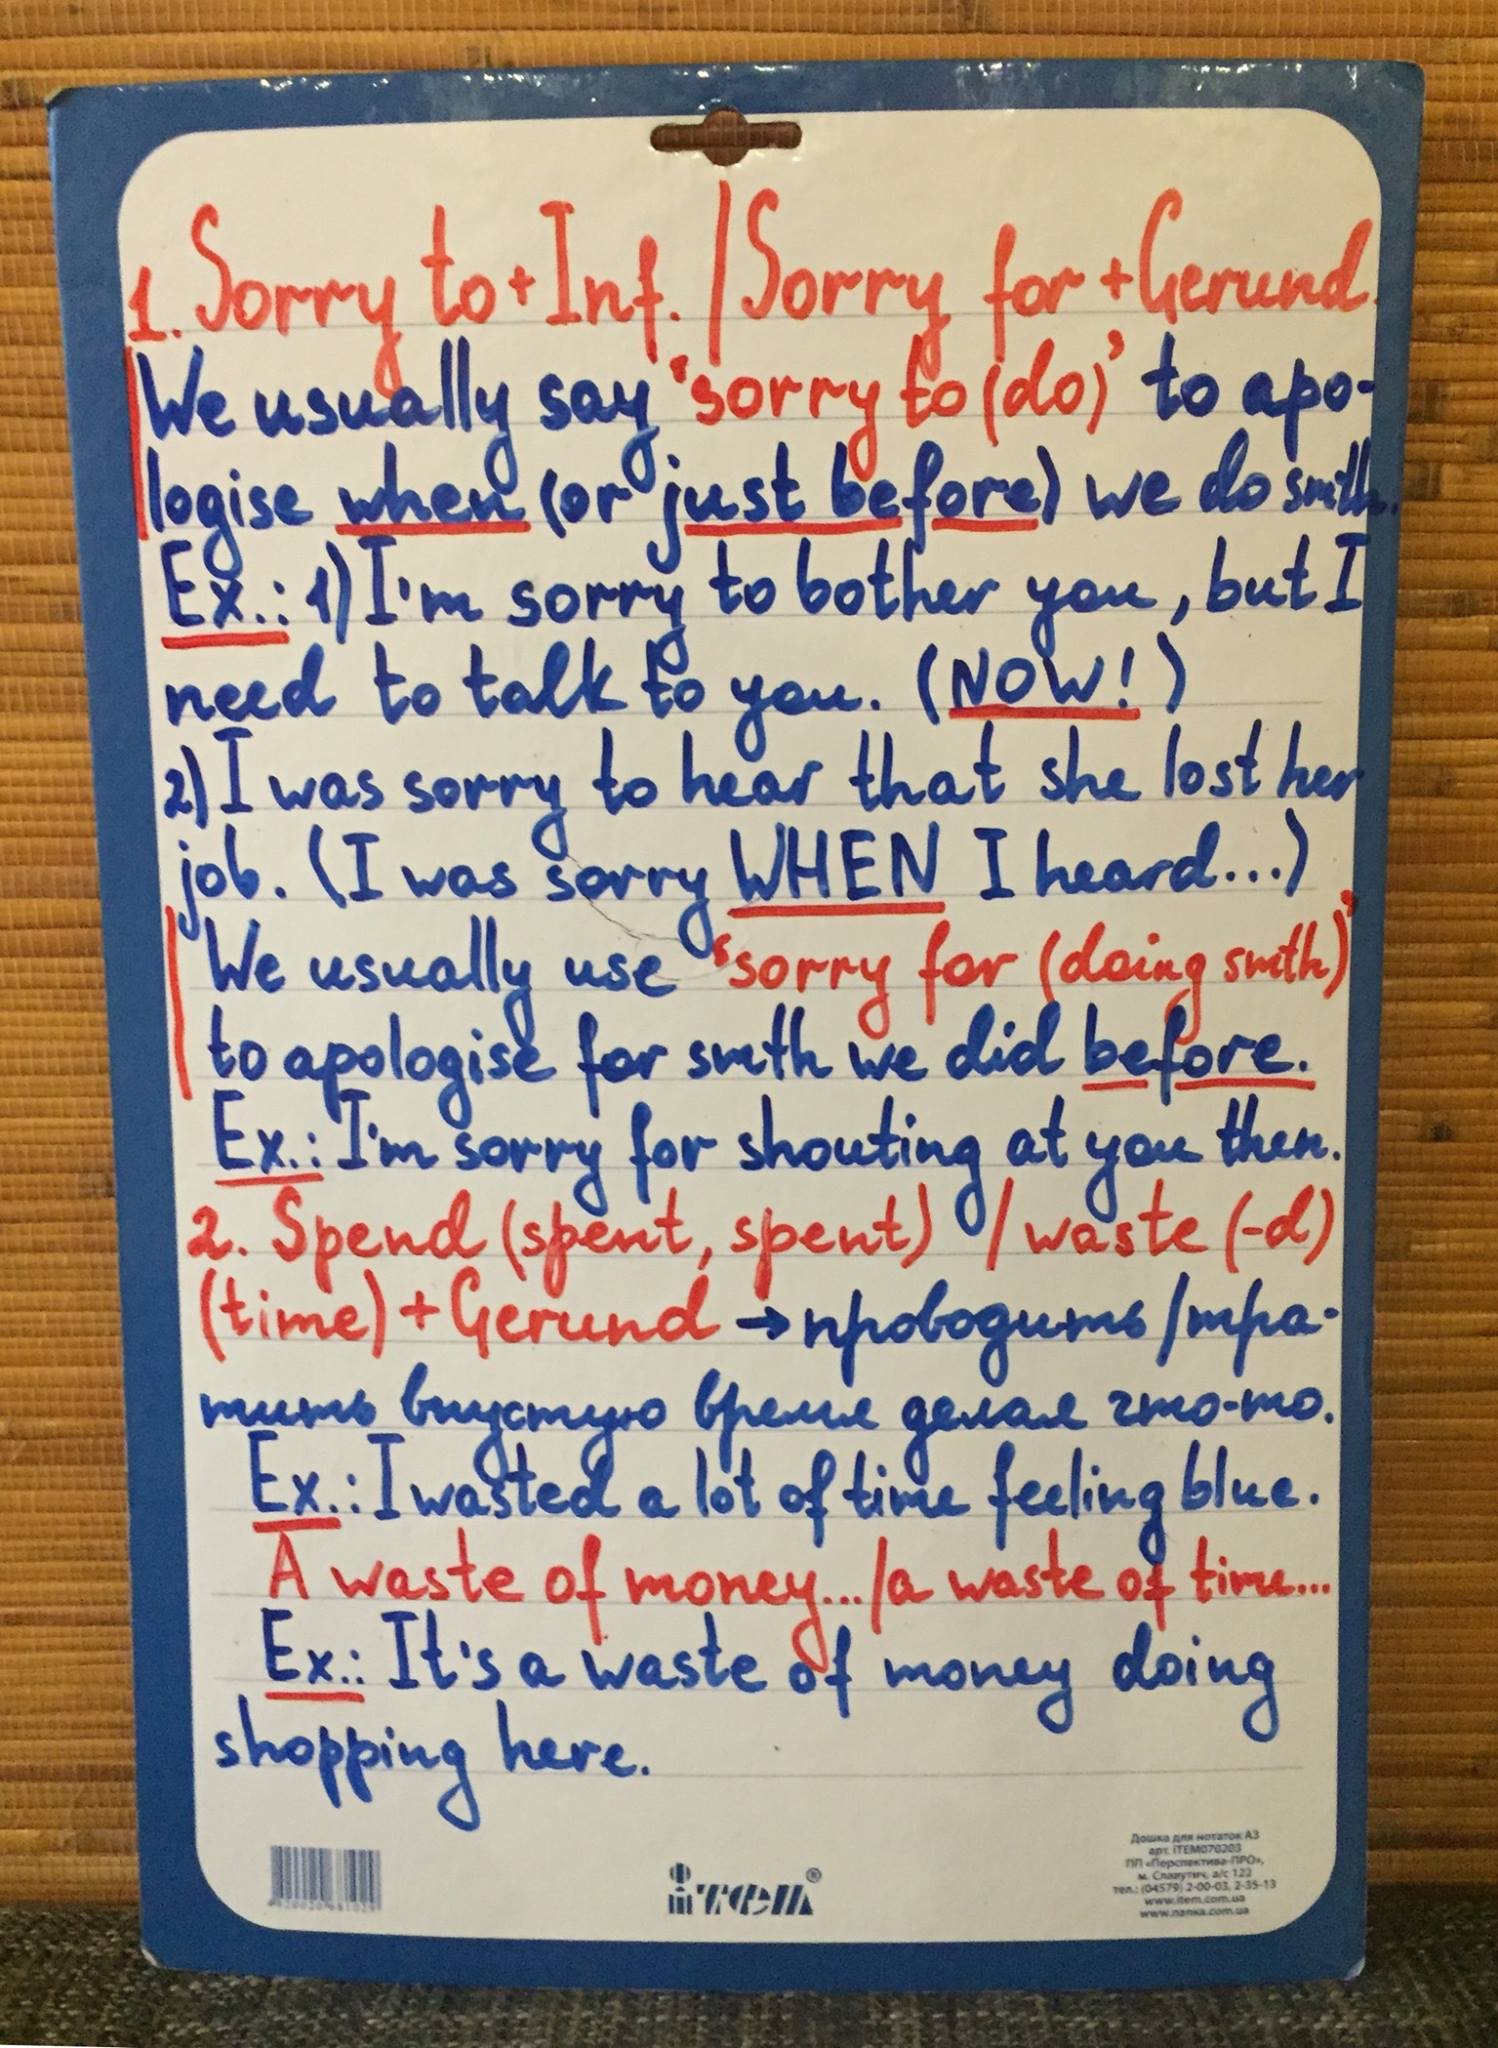 1. Sorry to+Inf. / Sorry for+Gerund.
We usually say 'sorry to (do)' to apo-
logise when (or just before) we do smth.
Ex.: 1) I'm sorry to bother you, but I
need to talk to you. (NOW!)
2) I was sorry to hear that she lost her
job. (I was sorry WHEN I heard...)
We usually use 'sorry for (doing smth)'
to apologise for smth we did before.
Ex.: I'm sorry for shouting at you then.
2. Spend (spent, spent) / waste (-d)
(time) + Gerund → проводить/тра-
тить впустую время делая что-то.
Ex.: I wasted a lot of time feeling blue.
A waste of money.../a waste of time...
Ex.: It's a waste of money doing
shopping here.
iтем®
Дошка для нотаток А3
арт. ITEM070203
ПП «Перспектива-ПРО»,
м. Славутич, а/с 122
тел.: (04579) 2-00-03, 2-35-13
www.item.com.ua
www.папка.com.ua